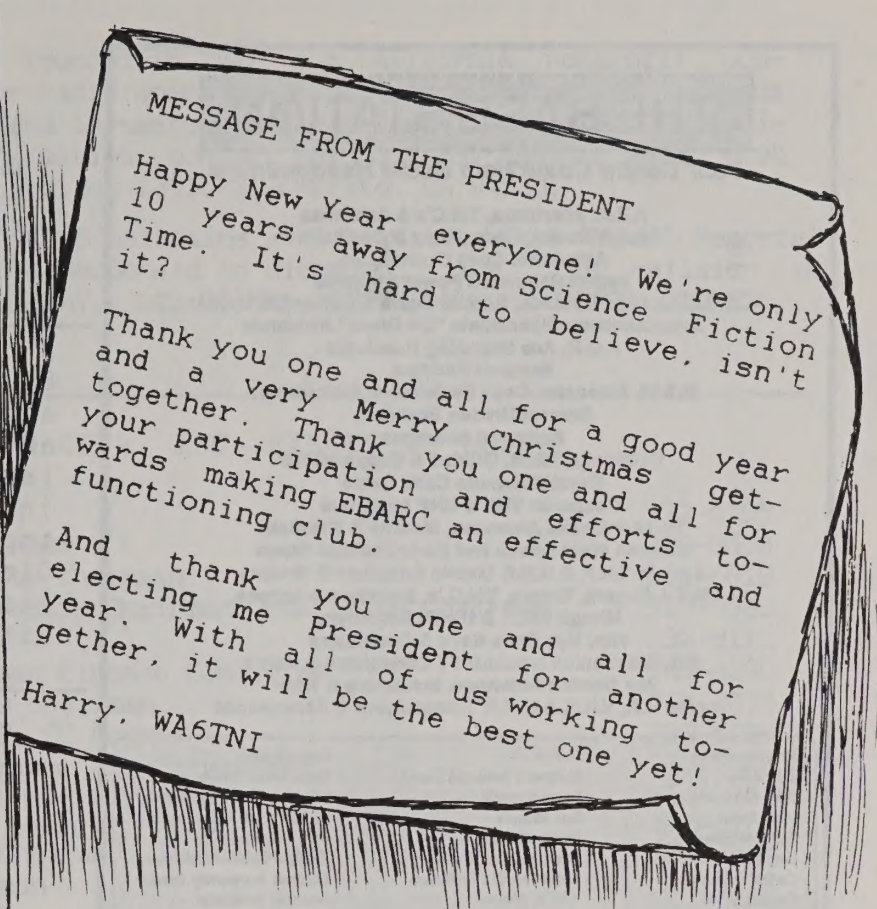 MESSAGE FROM THE PRESIDENT
Happy New Year everyone! We're only
10 years away from Science Fiction
Time. It's hard to believe, isn't
it?
Thank you one and all for a good year
and a very Merry Christmas get-
together. Thank you one and all for
your participation and efforts to-
wards making EBARC an effective and
functioning club.
And thank you one and all for
electing me President for another
year. With all of us working to-
gether, it will be the best one yet!
Harry, WA6TNI